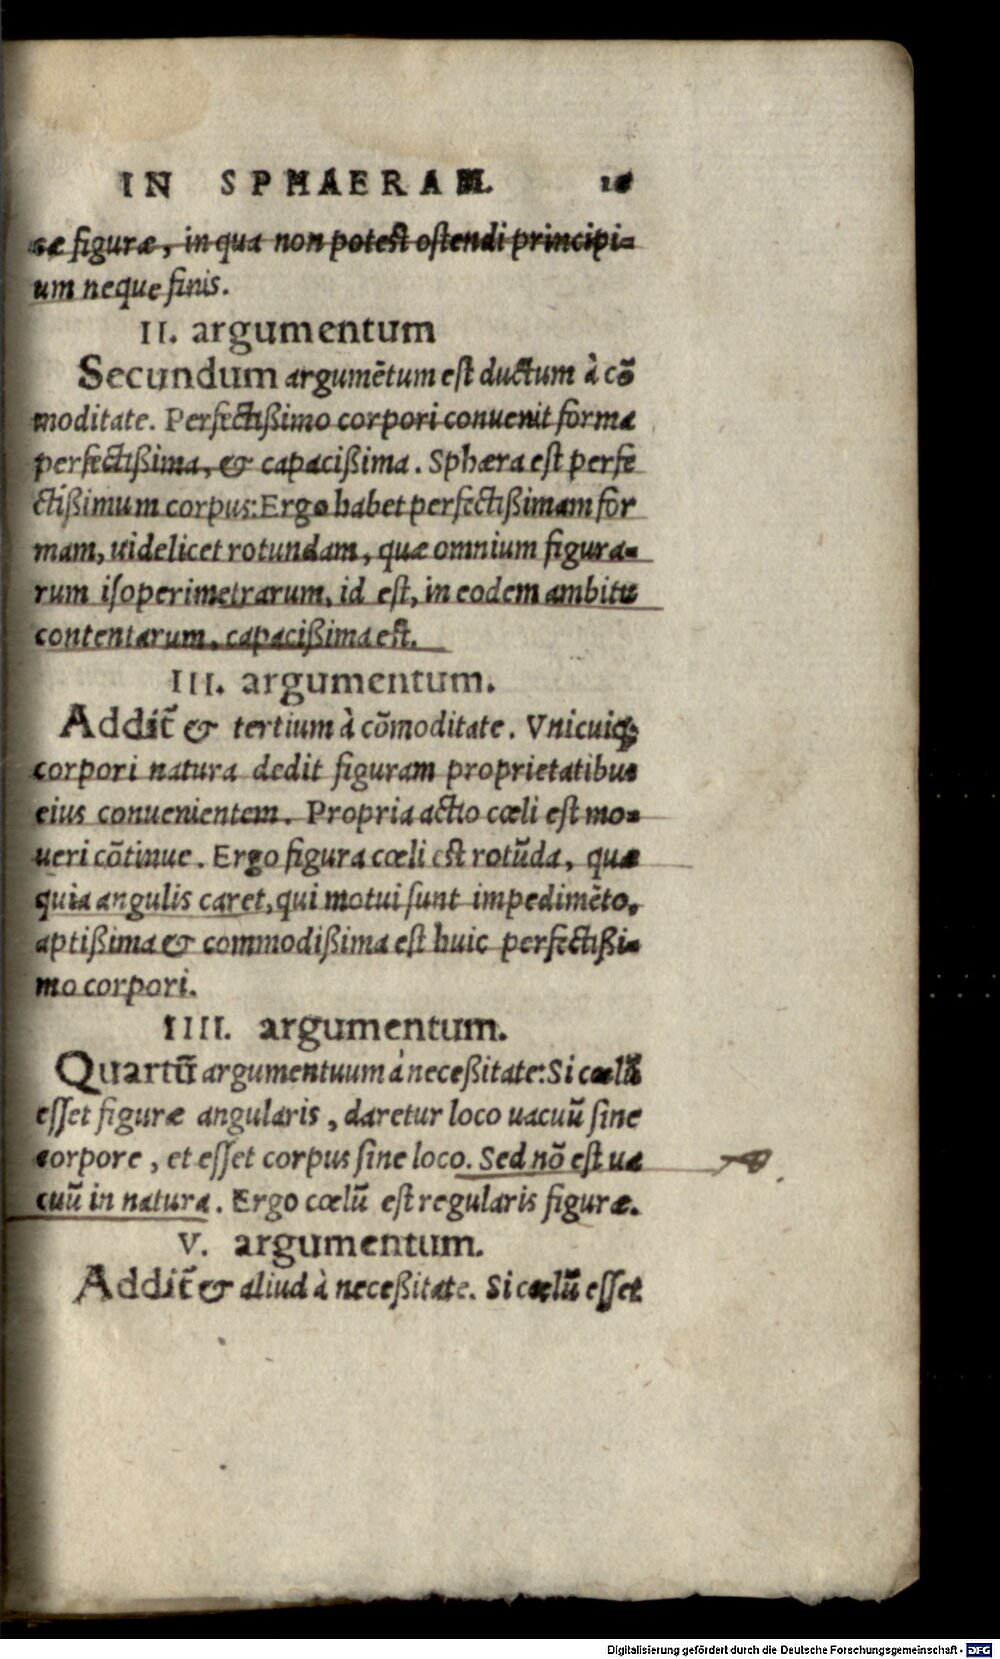 IN SPHAERAM.
sæ figuræ, in qua non potest ostendi principi-
um neque finis.
II. argumentum
Secundum argumẽtum est ductum à cõ
moditate. Perfectißimo corpori conuenit forma
perfectißima, & capacißima. Sphæra est perfe
ctißimum corpus: Ergo habet perfectißimam for
mam, uidelicet rotundam, quæ omnium figura-
rum isoperimetrarum, id est, in eodem ambitu
contentarum, capacißima est.
III. argumentum.
Addit̃ & tertium à cõmoditate. Vnicuiq;
corpori natura dedit figuram proprietatibus
eius conuenientem. Propria actio cœli est mo-
ueri cõtinue. Ergo figura cœli est rotũda, quæ
quia angulis caret, qui motui sunt impedimẽto,
aptißima & commodißima est huic perfectißi-
mo corpori.
IIII. argumentum.
Quartũ argumentuum à neceßitate: Si cœlũ
esset figuræ angularis, daretur loco uacuũ sine
corpore, et esset corpus sine loco. Sed nõ est ua
cuũ in natura. Ergo cœlũ est regularis figuræ.
V. argumentum.
Addit̃ & aliud à neceßitate. Si cœlũ esset
Digitalisierung gefördert durch die Deutsche Forschungsgemeinschaft - DFG